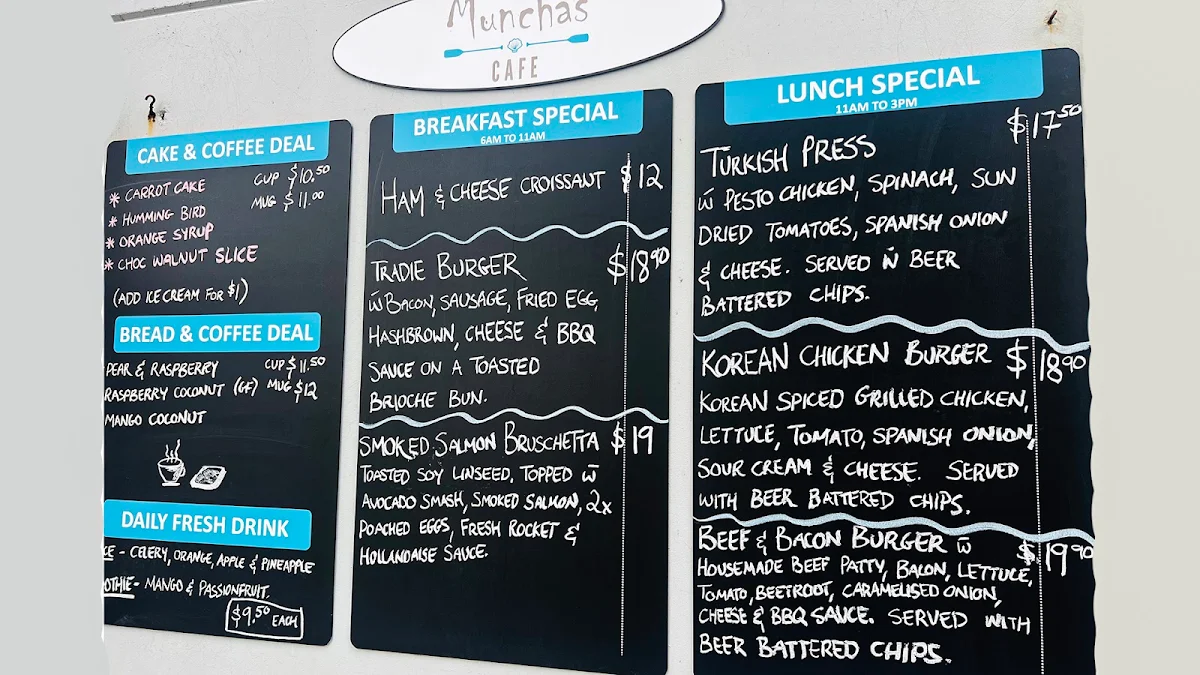 Munchas
CAFE
CAKE & COFFEE DEAL
* CARROT CAKE CUP $10.50
* HUMMING BIRD MUG $11.00
* ORANGE SYRUP
* CHOC WALNUT SLICE
(ADD ICE CREAM FOR $1)
BREAD & COFFEE DEAL
PEAR & RASPBERRY CUP $11.50
RASPBERRY COCONUT (GF) MUG $12
MANGO COCONUT
DAILY FRESH DRINK
CE - CELERY, ORANGE, APPLE & PINEAPPLE
OTHIE - MANGO & PASSIONFRUIT.
$9.50 EACH
BREAKFAST SPECIAL
6AM TO 11AM
HAM & CHEESE CROISSANT $12
TRADIE BURGER $18.90
W̄ BACON, SAUSAGE, FRIED EGG,
HASHBROWN, CHEESE & BBQ
SAUCE ON A TOASTED
BRIOCHE BUN.
SMOKED SALMON BRUSCHETTA $19
TOASTED SOY LINSEED, TOPPED W̄
AVOCADO SMASH, SMOKED SALMON, 2x
POACHED EGGS, FRESH ROCKET &
HOLLANDAISE SAUCE.
LUNCH SPECIAL
11AM TO 3PM
TURKISH PRESS $17.50
W̄ PESTO CHICKEN, SPINACH, SUN
DRIED TOMATOES, SPANISH ONION
& CHEESE. SERVED W̄ BEER
BATTERED CHIPS.
KOREAN CHICKEN BURGER $18.90
KOREAN SPICED GRILLED CHICKEN,
LETTUCE, TOMATO, SPANISH ONION,
SOUR CREAM & CHEESE. SERVED
WITH BEER BATTERED CHIPS.
BEEF & BACON BURGER W̄ $19.90
HOUSEMADE BEEF PATTY, BACON, LETTUCE,
TOMATO, BEETROOT, CARAMELISED ONION,
CHEESE & BBQ SAUCE. SERVED WITH
BEER BATTERED CHIPS.